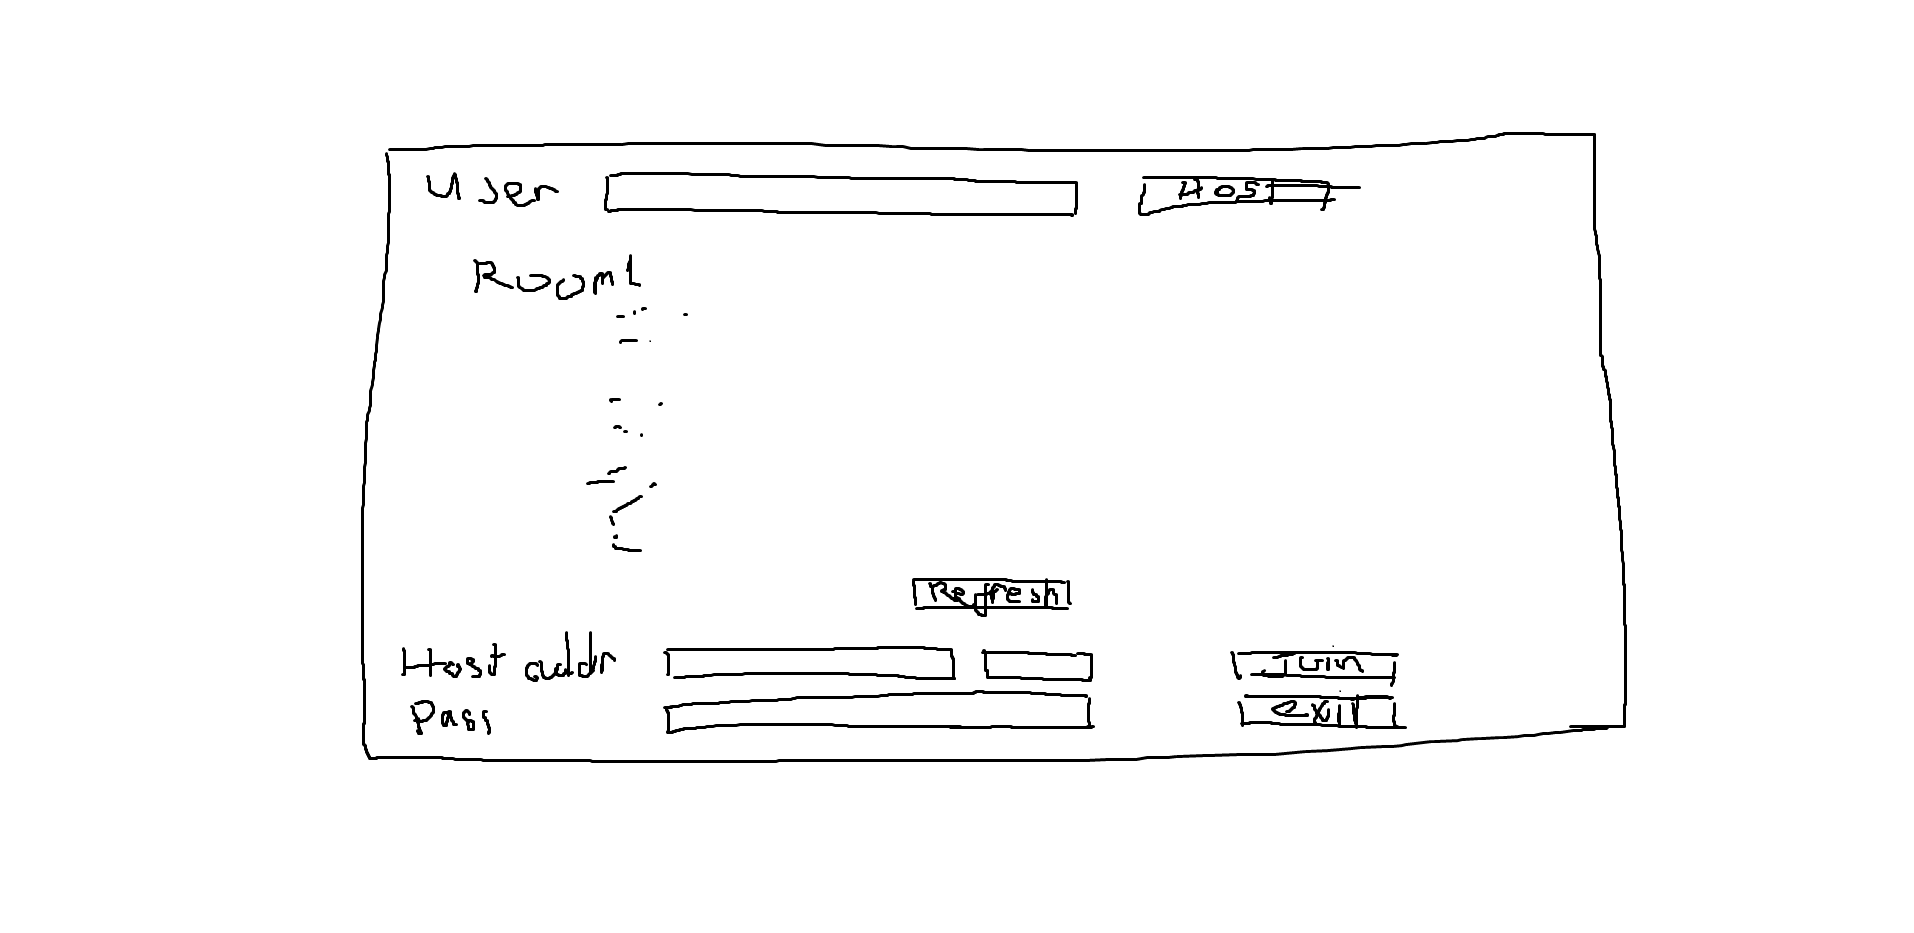 User Host
Room1
Refresh
Host addr Join
Pass exit